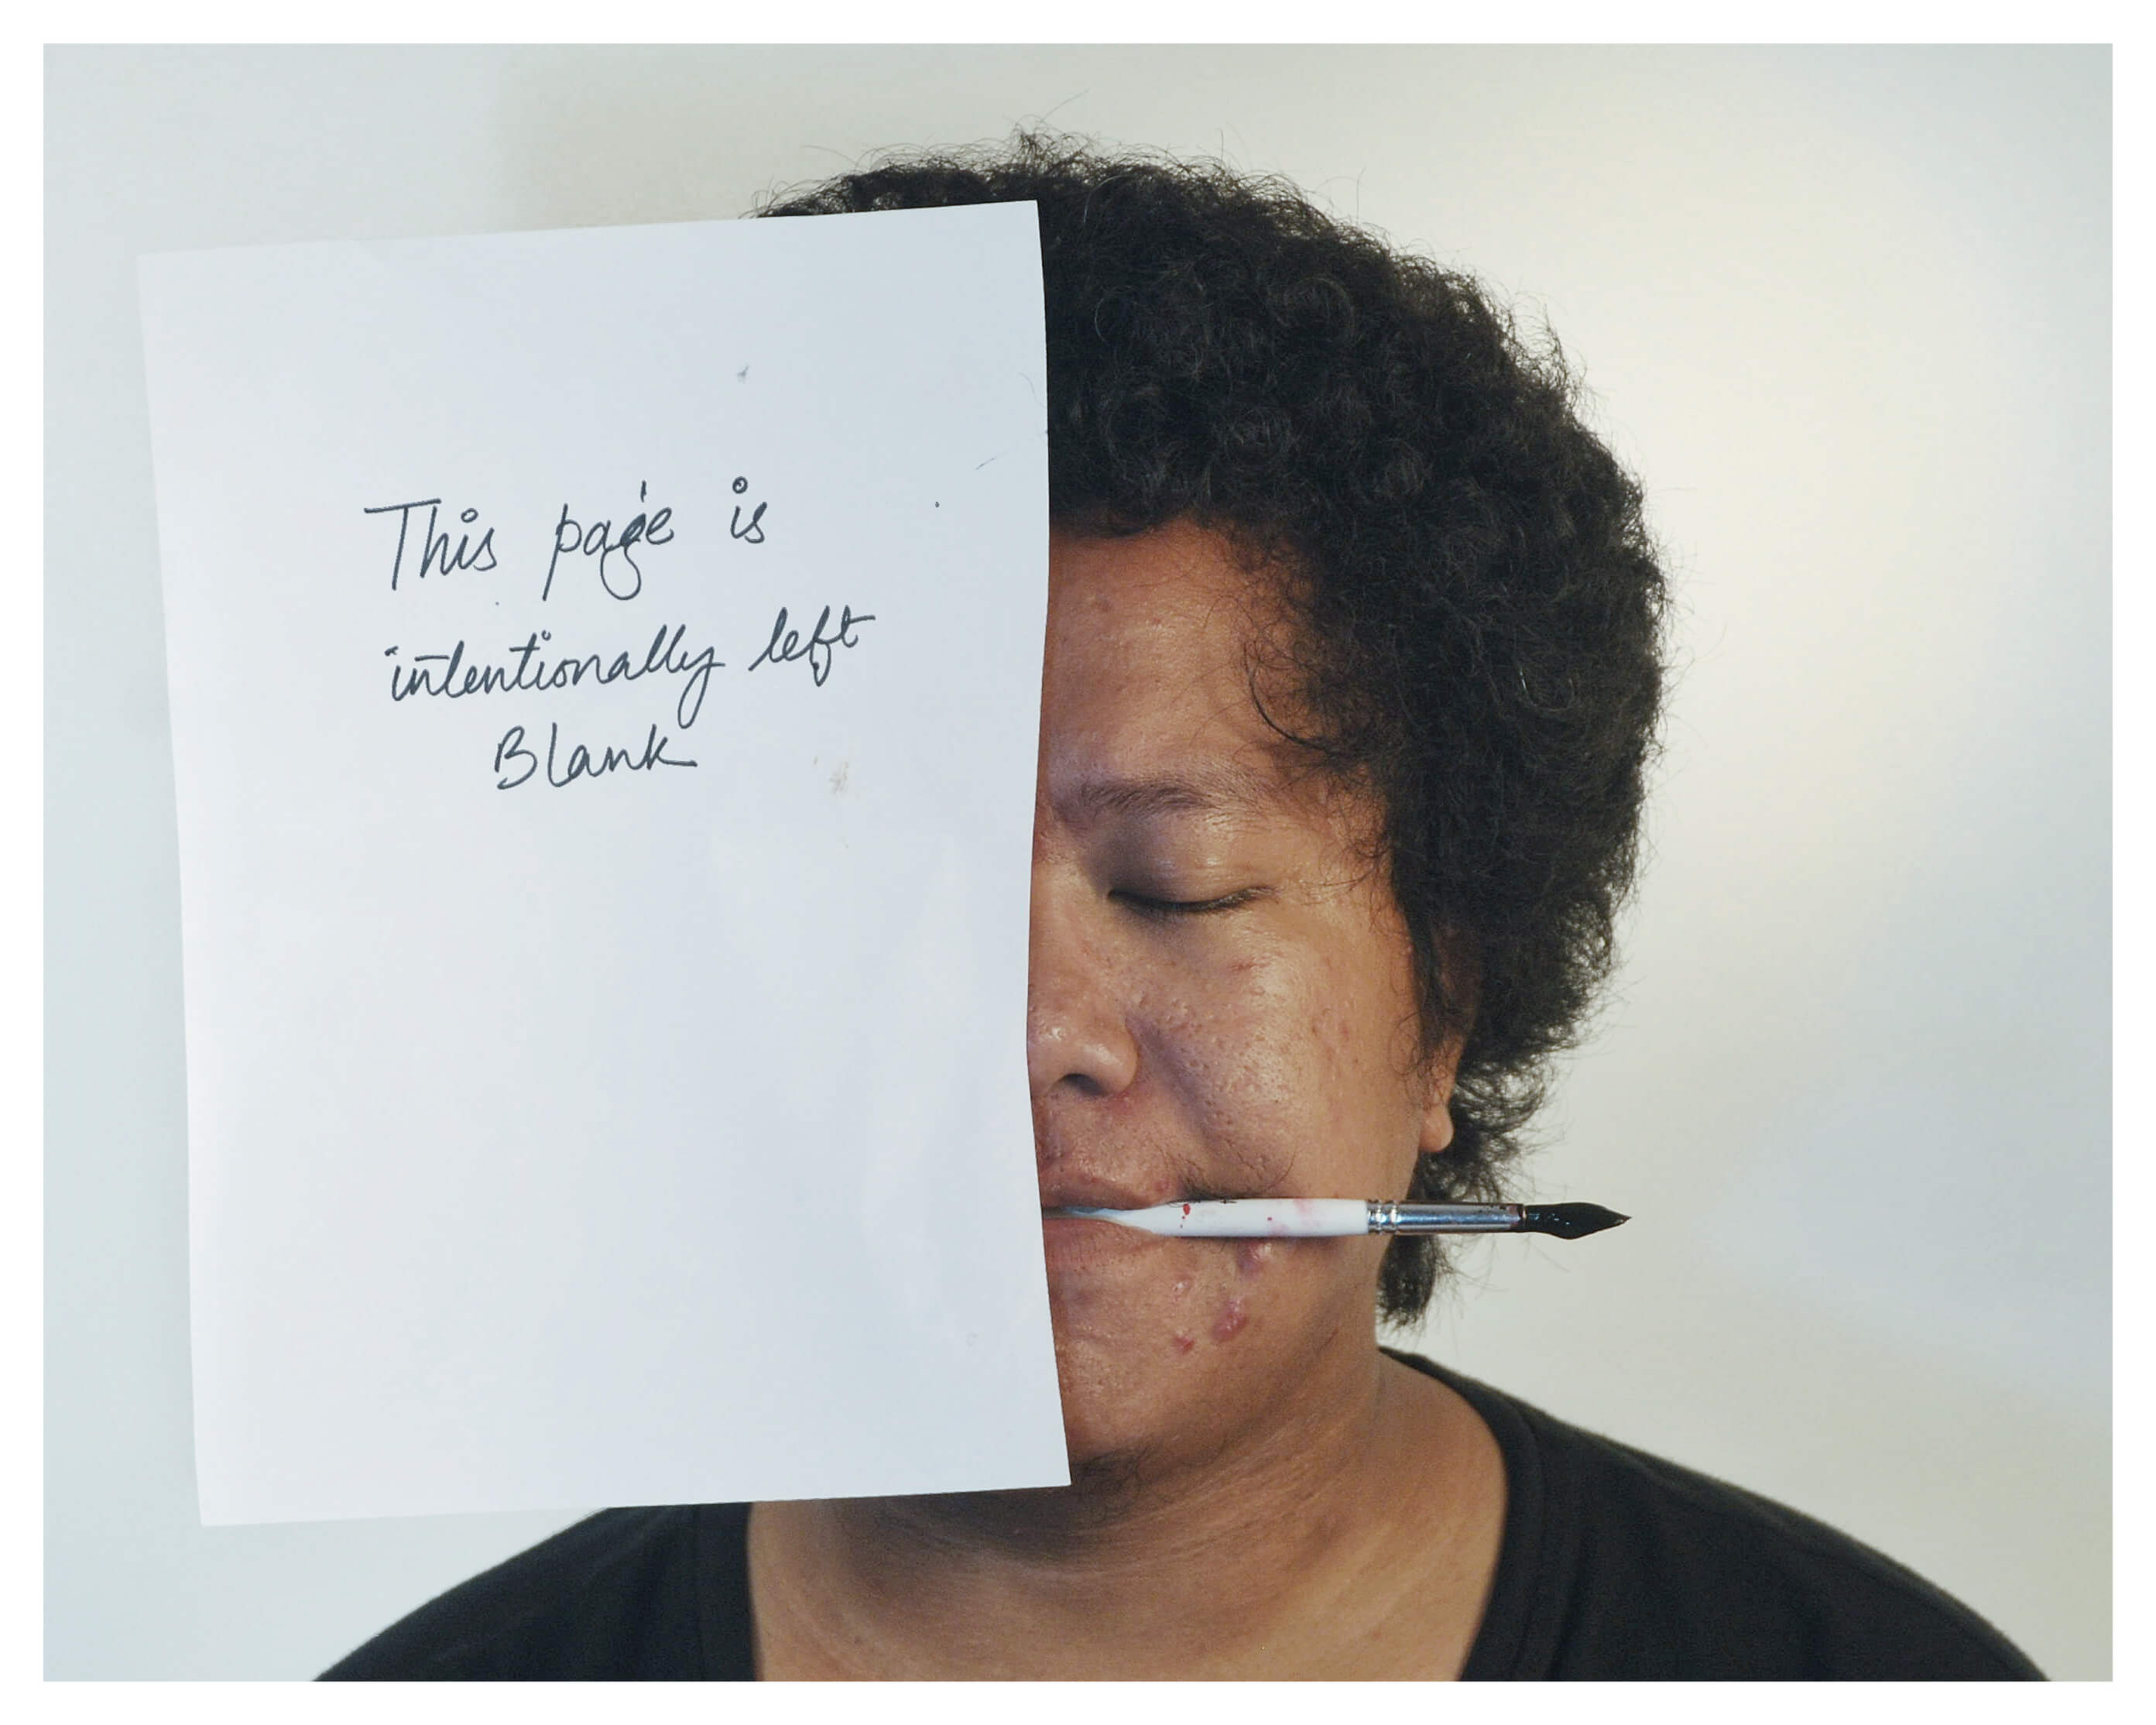 This page is
intentionally left
Blank